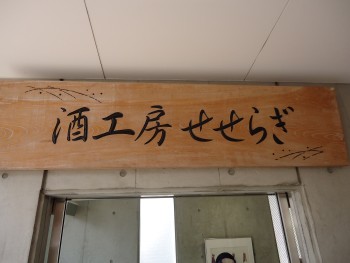 酒工房せせらぎ